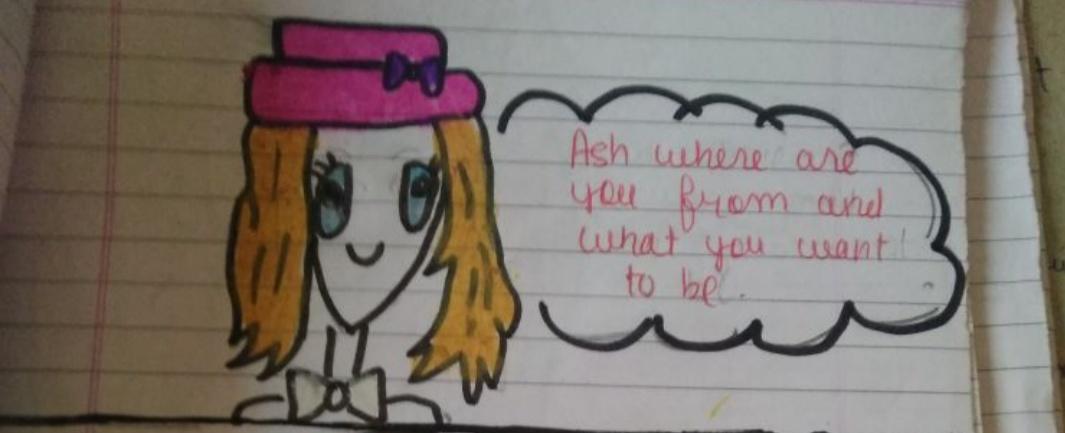 Ash where are
you from and
what you want
to be.